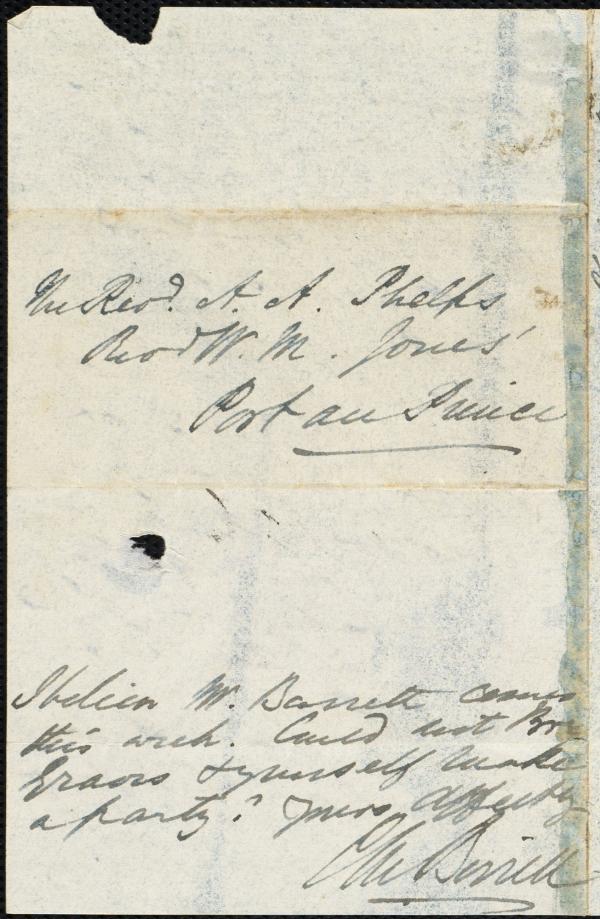 The Revd. A. A. Phelps
Revd W. M. Jones'
Port au Prince
I believe Mr. Barrett comes
this week. Could not Bro
Evans & yourself make
a party? Yours affectly